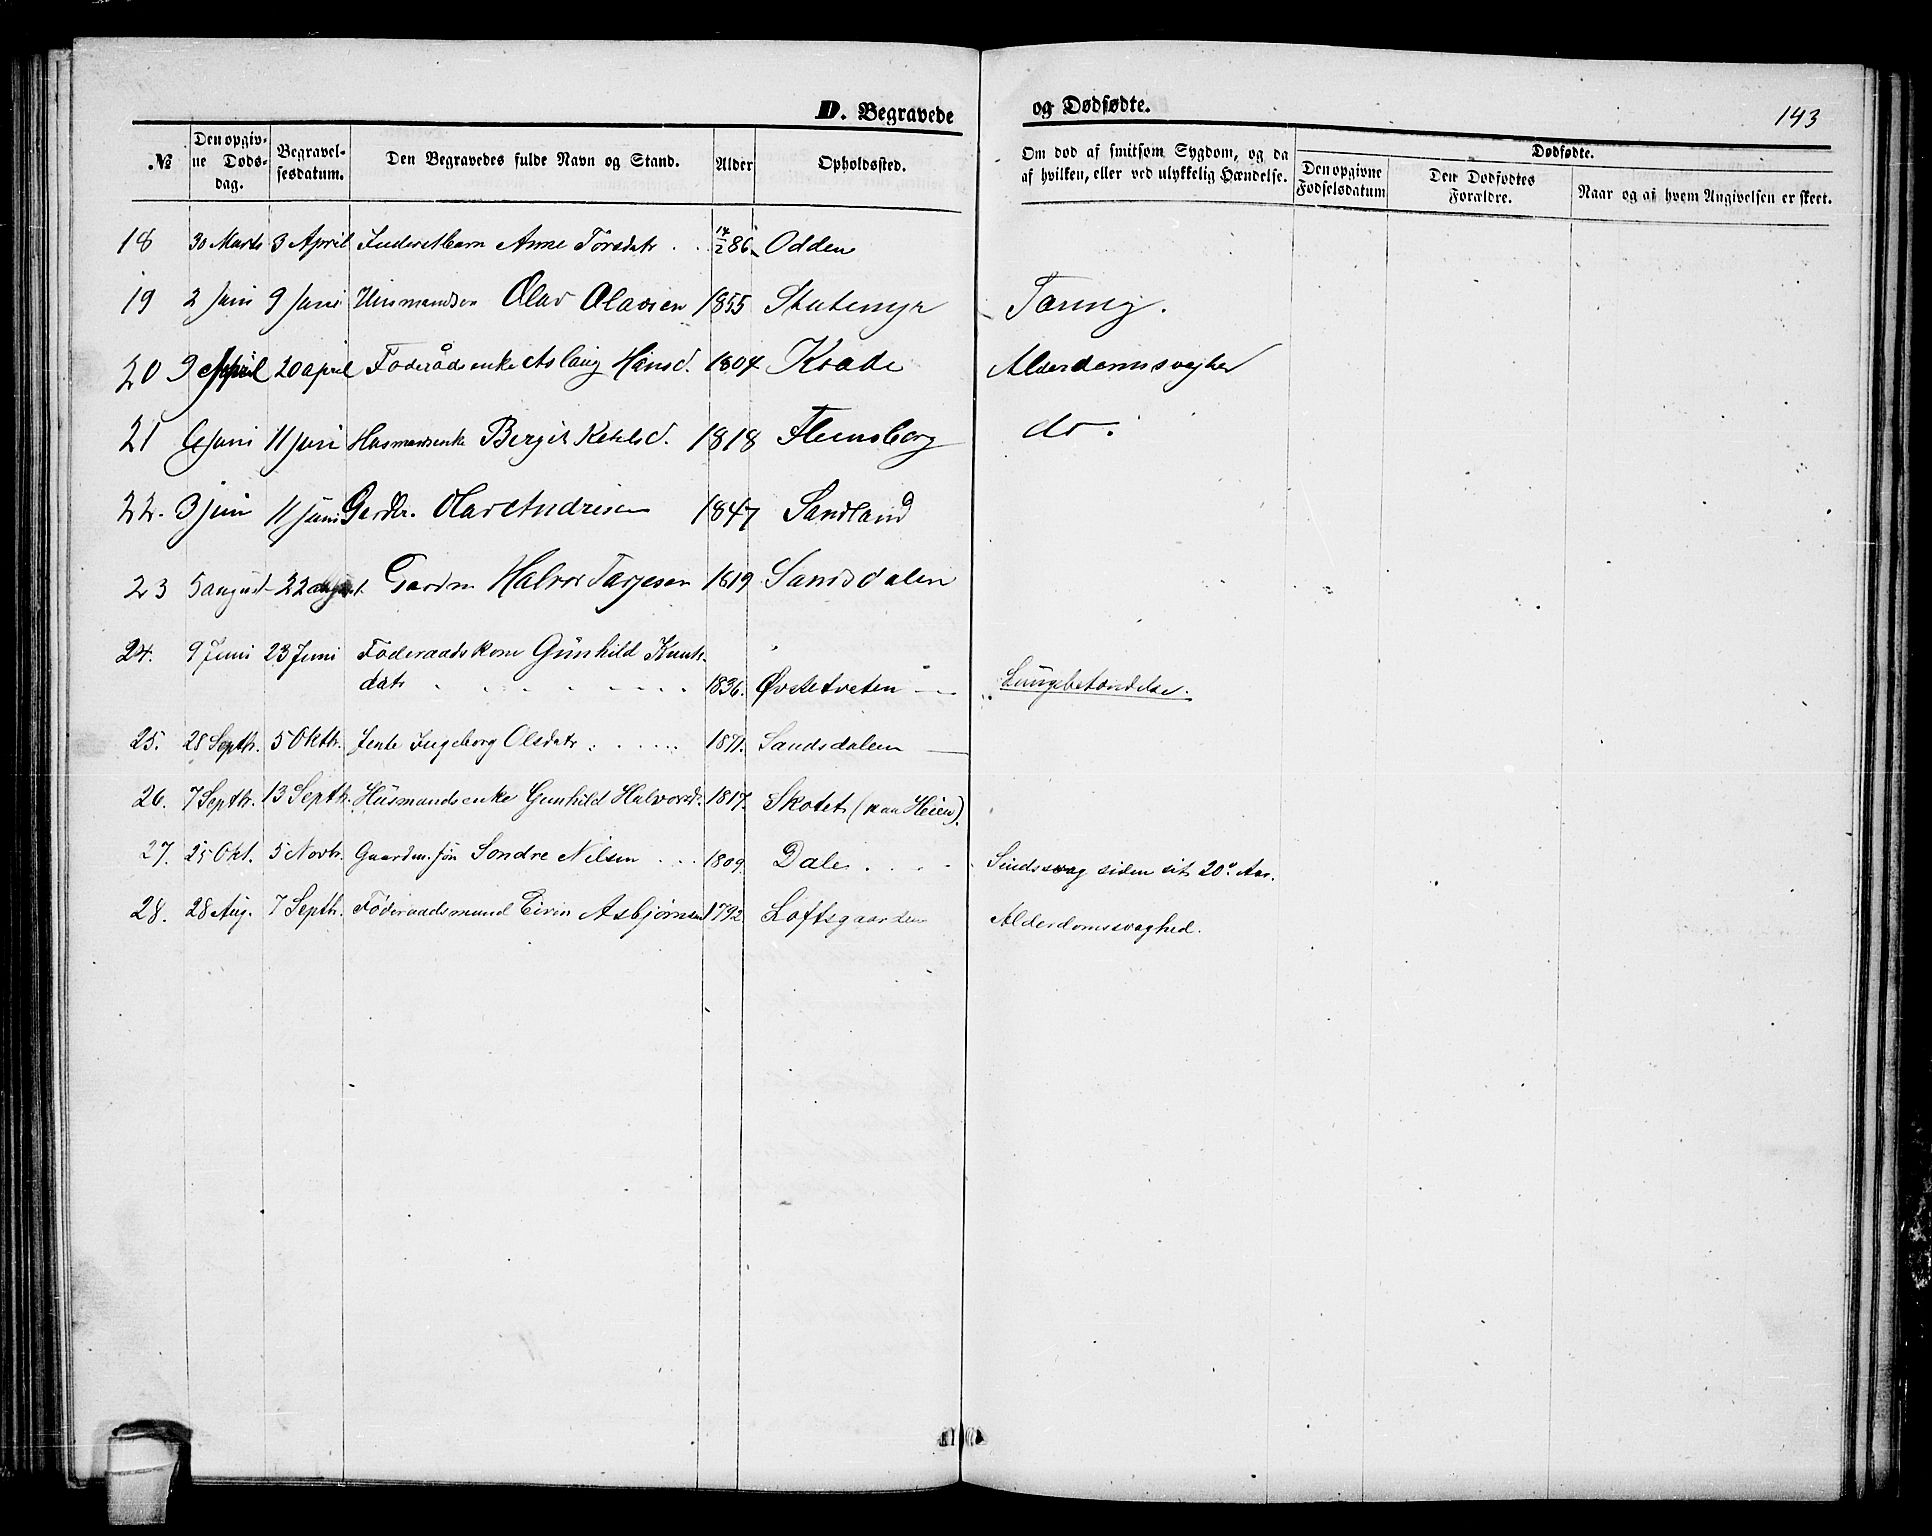 D. Begravede og Dødfødte. 143
№ Den opgivne Dødsdag. Begravelsesdatum. Den Begravedes fulde Navn og Stand. Alder Opholdssted. Om død af smitsom Sygdom, og da af hvilken, eller ved ulykkelig Hændelse. Dødfødte. Den opgivne Fødselsdatum Den Dødfødtes Forældre. Naar og af hvem Angivelsen er skeet.
18 30 Marts 3 April Inderstbarn Anne Torsdatr . . 14/2 86. Odden
19 2 Juni 9 Juni Husmandsøn Olav Olavsen 1855 Statemyr Tæring.
20 9 April 20 april Føderådsenke Aslaug Hansd. 1804 Kvade Alderdomssvaghed
21 6 Juni 11 juni Husmansenke Bergit Ketilsd. 1818 Flensborg do.
22. 3 juni 11 juni Gardbr. Olav Andresen 1847 Sandland
23 5 august 22 august. Gardm Halvor Tarjesen 1819 Sandsdalen
24. 9 Juni 23 Juni Føderaadskone Gunhild Knuts-
datr . . . . . . . 1836. Øvstetveten Lungebetændelse.
25. 28 Septh. 5 Oktb. Jente Ingeborg Olsdatr . . . . . 1871. Sandsdalen
26. 7 Septb. 13 Septb. Husmandsenke Gunhild Halvorsdr. 1817. Skotet (paa Heien).
27. 25 Okt. 5 Novb. Gaardm. søn Sondre Nilsen . . . 1809. Dale . . . Sindssvag siden sit 20de Aar.
28. 28 Aug. 7 Septb. Føderaadsmand Eivin Asbjørnsen 1792. Loftsgaarden Alderdomssvaghed.